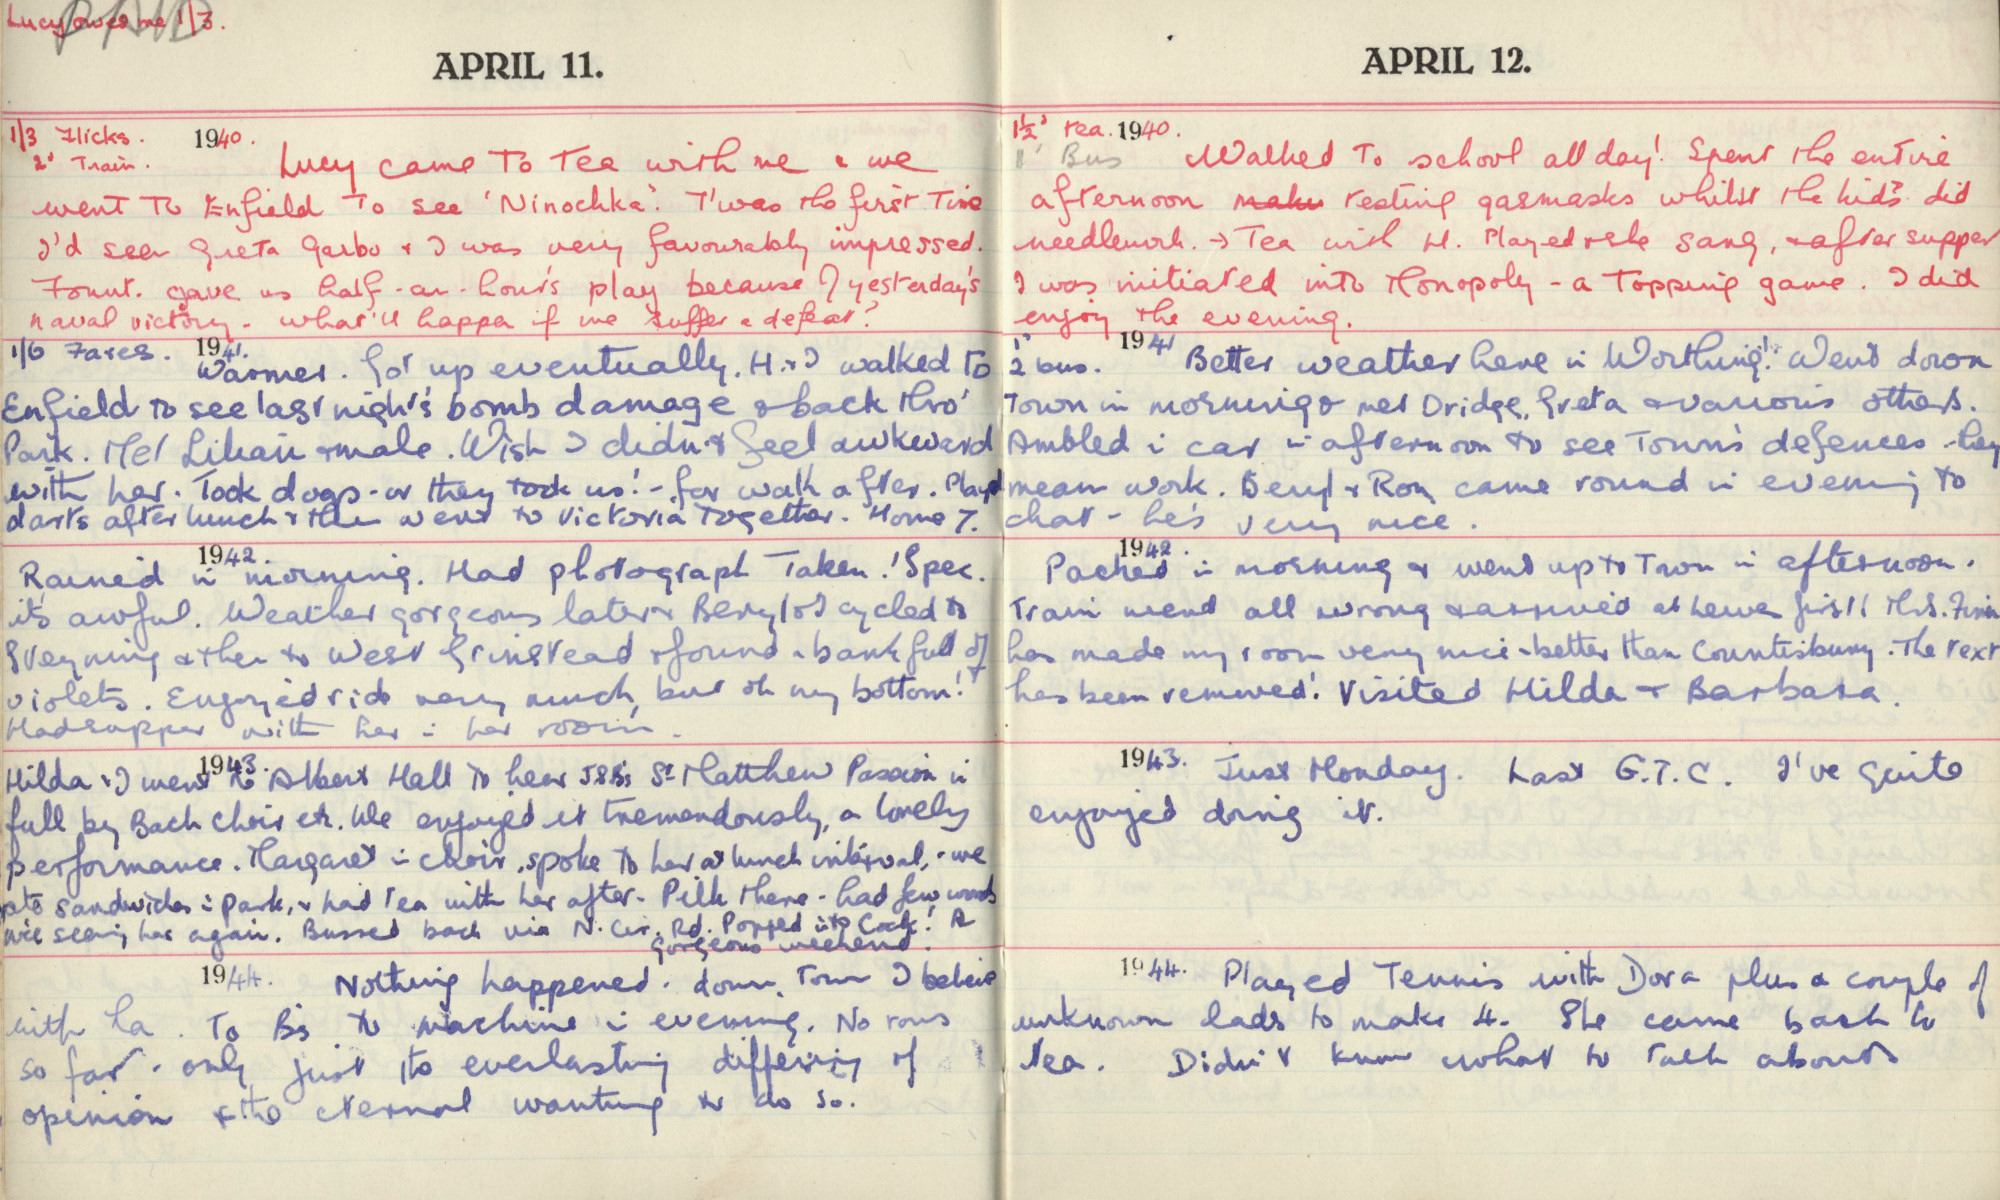 Lucy owes me 1/3.
PAID
APRIL 11.
1/3 Flicks. 1940.
2d Train. Lucy came to tea with me & we
went to Enfield to see 'Ninochka'. T'was the first time
I'd seen Greta Garbo & I was very favourably impressed.
Fount. gave us half-an-hour's play because of yesterday's
naval victory - what'll happen if we suffer a defeat?
1/6 Fares. 1941.
Warmer. Got up eventually. H. & I walked to
Enfield to see last night's bomb damage & back thro'
Park. Met Lilian & male. Wish I didn't feel awkward
with her. Took dogs - or they took us! - for walk after. Played
darts after lunch & then went to Victoria together. Home 7.
1942.
Rained in morning. Had photograph taken! Spec.
it's awful. Weather gorgeous later & Beryl & I cycled to
Steyning & then to West Grinstead & found a bank full of
violets. Enjoyed ride very much, but oh my bottom!
Had supper with her in her room.
1943.
Hilda & I went to Albert Hall to hear J.S.B's St Matthew Passion in
full by Bach Choir etc. We enjoyed it tremendously, a lovely
performance. Margaret in choir, spoke to her at lunch interval, we
ate sandwiches in park, & had tea with her after. Pilk there - had few words
nice seeing her again. Bussed back via N. Cir. Rd. Popped into Cock! A
gorgeous weekend.
1944. Nothing happened. down Town I believe
with La. To B's to machine in evening. No rows
so far - only just its everlasting differing of
opinion & the eternal wanting to do so.
APRIL 12.
1½d tea. 1940.
1d Bus Walked to school all day! Spent the entire
afternoon make testing gasmasks whilst the kids did
needlework. → Tea with H. Played & she sang, & after supper
I was initiated into Monopoly - a topping game. I did
enjoy the evening.
1941
2 bus. Better weather here in Worthing! Went down
Town in morning & met Dridge, Greta & various others.
Ambled in car in afternoon to see Town's defences - they
mean work. Beryl & Ron came round in evening to
chat - he's very nice.
1942.
Packed in morning & went up to Town in afternoon.
Train went all wrong & arrived at Lewes first! Mrs. Finn
has made my room very nice - better than Countisbury. The text
has been removed! Visited Hilda & Barbara.
1943. Just Monday. Last G.T.C. I've quite
enjoyed doing it.
1944. Played Tennis with Dora plus a couple of
unknown lads to make 4. She came back to
tea. Didn't know what to talk about